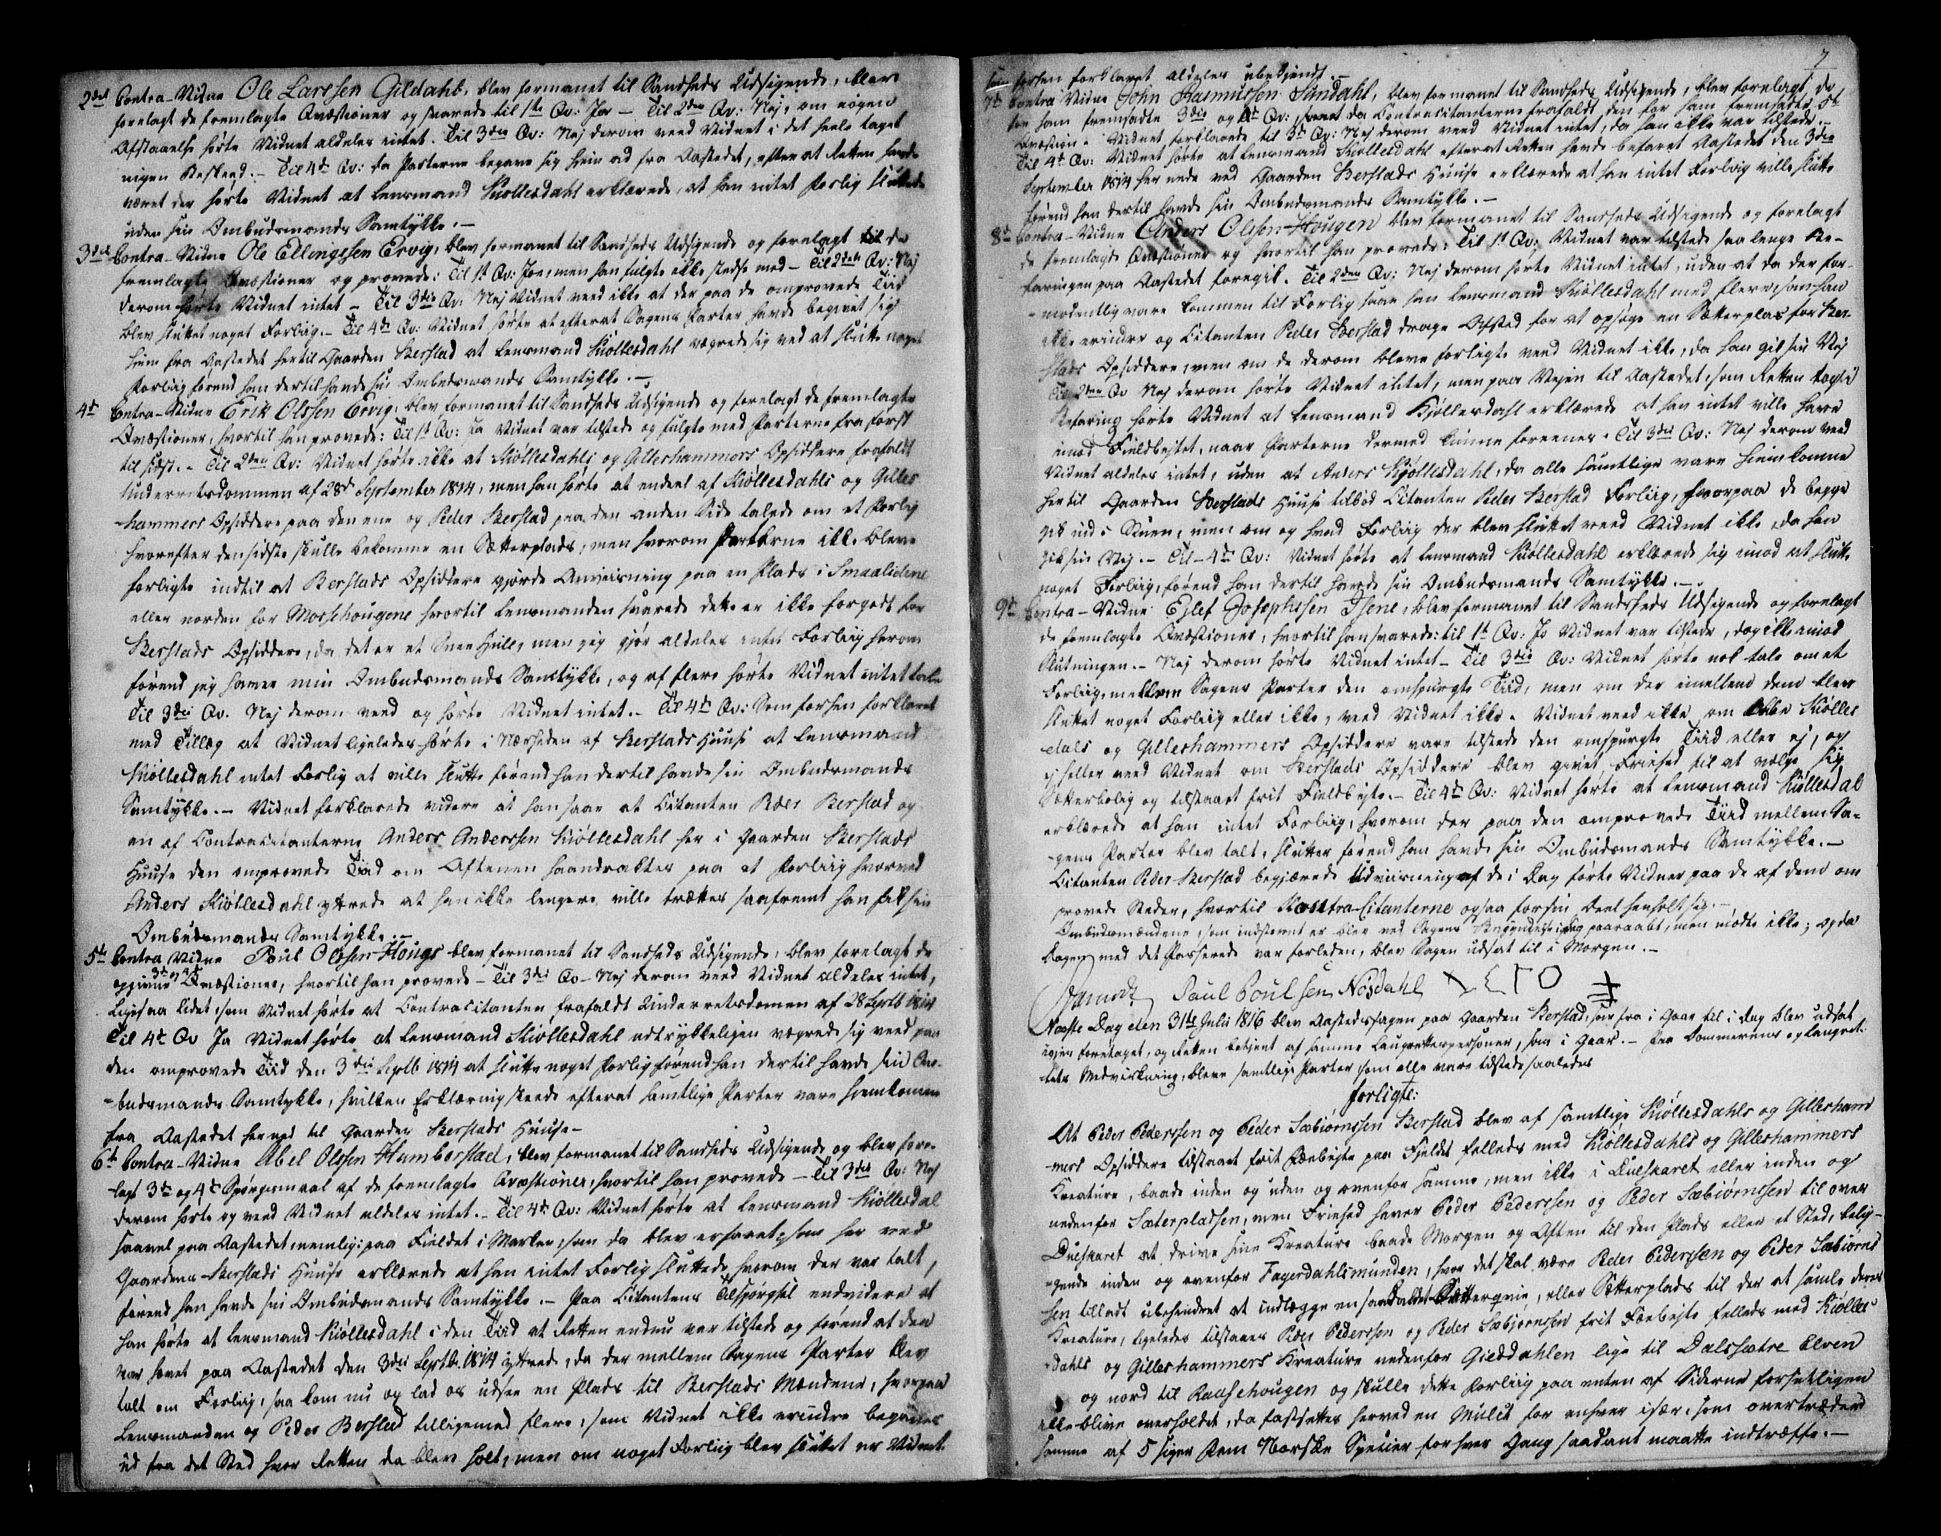 2det Contra-Vidne Ole Larssen Gildahl, blev formanet til Sandheds Udsigende, blev
forelagt de fremlagte Qvæstioner og svarede til 1ste Qv: Ja — Til 2den Qv: Nej, om nogen
Afstaaelse hørte Vidnet aldeles intet. Til 3die Qv: Nej derom veed Vidnet i det heele taget
ingen Beskeed. — Til 4de Qv: da Parterne begave sig hiem ad fra Aastedet, efter at Retten havde
været der hørte Vidnet at Lensmand Kiøllesdahl erklærede, at han intet Forlig sluttede
uden sin Ombudsmands Samtykke. —
3die Contra-Vidne Ole Ellingssen Ervig, blev formanet til Sandheds Udsigende og forelagt de
fremlagte Qvæstioner og provede: Til 1st Qv: Ja, men han fulgte ikke stedse med — Til 2den Qv: Nej
derom hørte Vidnet intet — Til 3die Qv: Nej Vidnet veed ikke at der paa de omprovede Tiid
blev sluttet noget Forliig. — Til 4de Qv: Vidnet hørte at efterat Sagens Parter havde begivet sig
hiem fra Aastedet hertil Gaarden Berstad at Lensmand Kiøllesdahl vægrede sig ved at slutte noget
Forliig førend han dertil havde sin Ombudsmands Samtykke. —
4de Contra-Vidne Erik Olssen Ervig, blev formanet til Sandheds Udsigende og forelagt de fremlagte
Qvæstioner, hvortil han provede: Til 1st Qv: Ja Vidnet var tilstede og fulgte med Parterne fra først
til sidst. — Til 2den Qv: Vidnet hørte ikke at Kiøllesdahls og Gilleshammers Opsiddere frafaldt
Underretsdommen af 28de September 1814, men han hørte at endeel af Kiøllesdahls og Gilles
hammers Opsiddere paa den ene og Peder Berstad paa den anden Side talede om et Forlig
hvorefter den sidste skulle bekomme en Sætterplads, men hvorom Parterne ikke bleve
forligte indtil at Berstads Opsiddere gjorde Anviisning paa en Plads i Smaalidene
eller norden for Morschougene hvortil Lensmanden svarede dette er ikke forgodt for
Berstads Opsiddere, da det er et Snee Hull, men jeg gjør aldeles intet Forliig herom
førend jeg haver min Ombudsmands Samtykke, og af flere hørte Vidnet intet tale
Til 3die Qv. Nej derom veed og hørte Vidnet intet. — Til 4de Qv: Som forhen forklaret
med Tillæg at Vidnet ligeledes hørte i Nærheden af Berstads Huuse at Lensmand
Kiøllesdahl intet Forlig at ville slutte førend han dertil havde sin Ombudsmands
Samtykke. — Vidnet forklarede videre at han saae at Citanten Peder Berstad og
en af Contracitanterne Anders Anderssen Kiøllesdahl her i Gaarden Berstads
Huuse den omprovede Tiid om Aftenen haandraktes paa et Forliig hvorved
Anders Kiøllesdahl yttrede at han ikke lengere ville trættes saafremt han fik sin
Ombudsmands Samtykke. —
5te Contra Vidne Poul Olssen Houge blev formanet til Sandheds Udsigende, blev forelagt de
3de og 4de
opgivne Qvæstioner, hvortil han provede — Til 3die Qv — Nej derom veed Vidnet aldeles intet,
Ligesaa lidet, som Vidnet hørte at Contracitanten frafaldt Underretsdomen af 28 Septb 1814
Til 4de Qv Ja Vidnet hørte at Lensmand Kiøllesdahl udtrykkeligen vægrede sig ved paa
den omprovede Tiid den 3die Septb 1814 at slutte noget Forlig førend han dertil havde sin Om-
budsmands Samtykke, hvilken Erklæring skeede efterat samtlige Parter vare hiemkomen
fra Aastedet herned til Gaarden Berstads Huuse —
6te Contra-Vidne Abel Olssen Humborstad, blev formanet til Sandheds Udsigende og blev fore-
lagt 3de og 4de Spørgsmaal af de fremlagte Qvæstioner, hvortil han provede — Til 3die Qv: Nej
derom hørte og veed Vidnet aldeles intet. — Til 4de Qv: Vidnet hørte at Lensmand Kiøllesdal
saavel paa Aastedet, nemlig paa Fieldet i Marken, som da blev erfaret, som her ved
Gaardens Berstads Huuse erklærede at han intet Forlig sluttede hvorom der var talt,
førend han havde sin Ombudsmands Samtykke. — Paa Citantens Tilspørgsel endvidere at
han hørte at Lensmand Kiøllesdahl i den Tiid at Retten endnu var tilstede og førend at den
var hævet paa Aastedet den 3die Septb. 1814 yttrede, da der mellem Sagens Parter blev
talt om Forliig, saa kom nu og lad os udsee en Plads til Berstads Mændene, hvorpaa
Lensmanden og Peder Berstad tilligemed flere, som Vidnet ikke erindre begave
ud fra det Sted hvor Retten da blev holt, men om noget Forliig blev sluttet er Vidnet
7
som forhen forklaret aldeles ubekjendt. —
7de Contra Vidne John Rasmussen Sandahl, blev formanet til Sandheds Udsigende, blev forelagt de
for ham fremsadte 3die og 4de Qv: da Contracitanterne frafaldt den for ham fremsadte
Qvæstion. Vidnet forklarede til 3de Qv: Nej derom veed Vidnet intet, da han ikke var tilstede. —
Til 4de Qv: Vidnet hørte at Lensmand Kiøllesdahl efterat Retten havde befaret Aastedet den 3die
September 1814 her nede ved Gaarden Berstads Huuse erklærede at han intet Forliig ville slutte
førend han dertil havde sin Ombudsmands Samtykke. —
8de Contra-Vidne Anders Olssen Hougen blev formanet til Sandheds Udsigende og forelagt
de fremlagte Qvæstioner og hvortil han provede: Til 1st Qv: Vidnet var tilstede saa lenge Be-
faringen paa Aastedet foregik. Til 2den Qv: Nej derom hørte Vidnet intet, uden at da der for-
modentlig vare kommen til Forlig saae han Lensmand Kiøllesdahl med flere, som han
ikke erindre og Citanten Peder Berstad drage Afsted for at opsøge en Sætterplas for Ber-
stads Opsiddere, men om de derom bleve forligte veed Vidnet ikke, da han gik sin Vej
Til 2den Qv Nej derom hørte Vidnet intet, men paa Vejen til Aastedet, som Retten tog til
Befaring hørte Vidnet at Lensmand Kjøllesdahl erklærede at han intet ville have
imod Fieldbeitet, naar Parterne dermed kunne foreenes. Til 3die Qv: Nej derom veed
Vidnet aldeles intet, uden at Anders Kjøllesdahl, da alle samtlige vare hiemkomne
hertil Gaarden Berstads Huuse tilbød Citanten Peder Berstad Forliig, hvorpaa de begge
gik ind i Stuen, men om og hvad Forliig der blev sluttet veed Vidnet ikke, da han
gik sin Vej. — Til — 4de Qv: Vidnet hørte at Lensmand Kiøllesdahl erklærede sig imod at slutte
noget Forliig, førend han dertil havde sin Ombudsmands Samtykke. —
9de Contra-Vidne Ejlef Josephssen Hene, blev formanet til Sandheds Udsigende og forelagt
de fremlagte Qvæstioner, hvortil han svarede: til 1st Qv: Jo Vidnet var tilstede, dog ikke imod
Slutningen. — Nej derom hørte Vidnet intet — Til 3die Qv: Vidnet hørte vel tale om et
Forliig, mellem Sagens Parter den omspurgte Tiid, men om der imellem dem blev
sluttet noget Forliig eller ikke, veed Vidnet ikke. Vidnet veed ikke om Kiølles
dals og Gilleshammers Opsiddere vare tilstede den omspurgte Tiid eller ej, og
ej heller veed Vidnet om Berstads Opsiddere blev givet Friehed til at vælge sig
Sætterbolig og tilstaaet frit Fieldbeyte. — Til 4de Qv: Vidnet hørte at Lensmand Kiøllesdal
erklærede at han intet Forliig, hvorom der paa den omprovede Tiid mellem Sa-
gens Parter blev talt, slutter førend han havde sin Ombudsmands Samtykke. —
Citanten Peder Berstad begjærede Udviisning af de i Dag førte Vidner paa de af dem om
provede Steder, hvortil Contra-Citanterne ogsaa forsin Deel henholdt sig. —
Ombudsmændene, som indstevnt er blev ved Sagens Begyndelse i Dag paaraabt, men mødte ikke; og da
Dagen med det Passerede var forløden, blev Sagen udsat til i Morgen. —
Paul Poulsen Nosdahl
Næste Dag den 31te Julii 1816 blev Aastedssagen paa Gaarden Berstad, der fra i Gaar til i Dag blev udsat
igjen foretaget, og Retten betjent af samme Laugrettespersoner, som i Gaar. — Fra Dommerens og Laugret-
tets Medvirkning, bleve samtlige Parter som alle vare tilstede saaledes
forligte:
At Peder Pederssen og Peder Sæbiørnssen Berstad blev af samtlige Kiøllesdahls og Gilleham
mers Opsiddere tilstaaet frit Fæebeyte paa Fjeldet felleds med Kiøllesdahls og Gilleshammers
Kreature, baade inden og uden og ovenfor samme, men ikke i Dueskaret eller inden og
nedenfor Sæterpladsen, men Friehed haver Peder Pederssen og Peder Sæbiørnssen til over
Dueskaret at drive sine Kreature baade Morgen og Aften til den Plads eller et Sted, belig-
gende inden og ovenfor Fagerdahlsmunden, hvor det skal være Peder Pederssen og Peder Sæbiørns
sen tilladt ubehindret at indlægge en saakaldet Sætterqvie, eller Sætterplads til der at samle deres
Kreature, ligeledes tilstaaes Peder Pederssen og Peder Sæbjørnssen frit Fæebeyte felleds med Kiølles-
dahls og Gilleshammers Kreature nedenfor Gieddahlen lige til Dalssætre Elven
og nord til Raasehougen og skulle dette Forliig paa enten af Siderne forsetligen
ikke blive overholdet, da fastsættes herved en Mulct for enhver især, som overtræder
samme af 5 siger Fem Norske Specier for hver Gang saadant maatte indtræffe. —